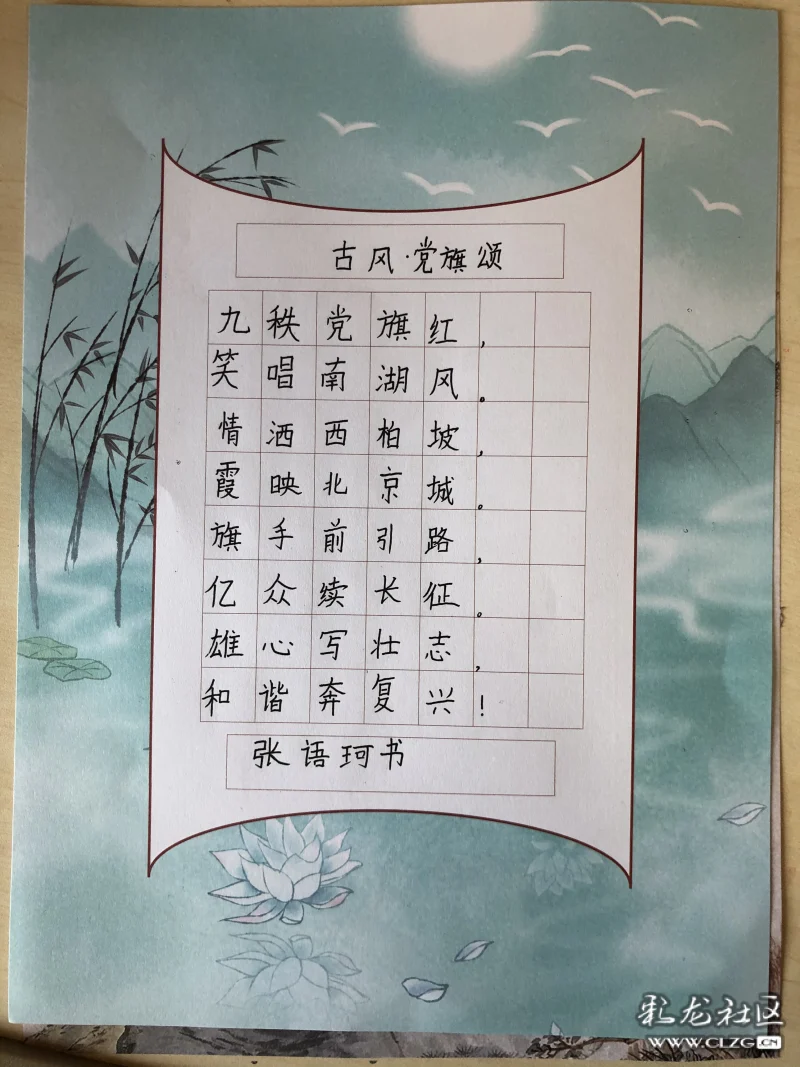 古风·党旗颂
九秩党旗红，
笑唱南湖风。
情洒西柏坡，
霞映北京城。
旗手前引路，
亿众续长征。
雄心写壮志，
和谐奔复兴！
张语珂书
彩龙社区
WWW.CLZG.CN